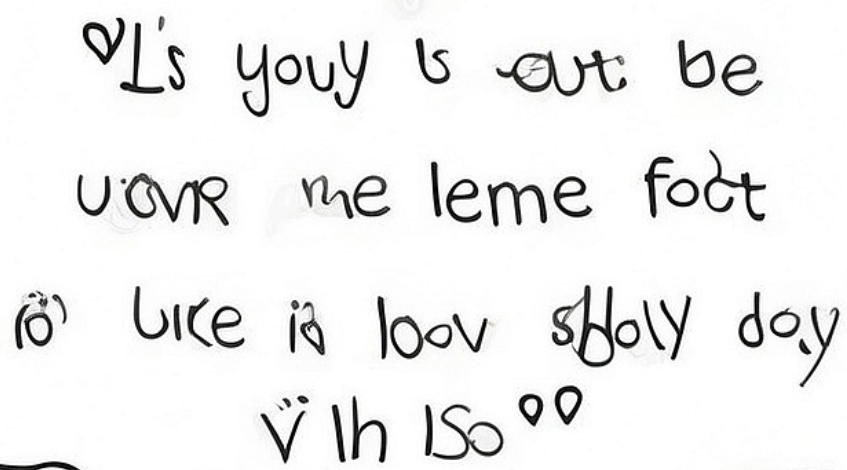 L's youy is out be
uovr me leme foct
like is loov day
V Ih ISo